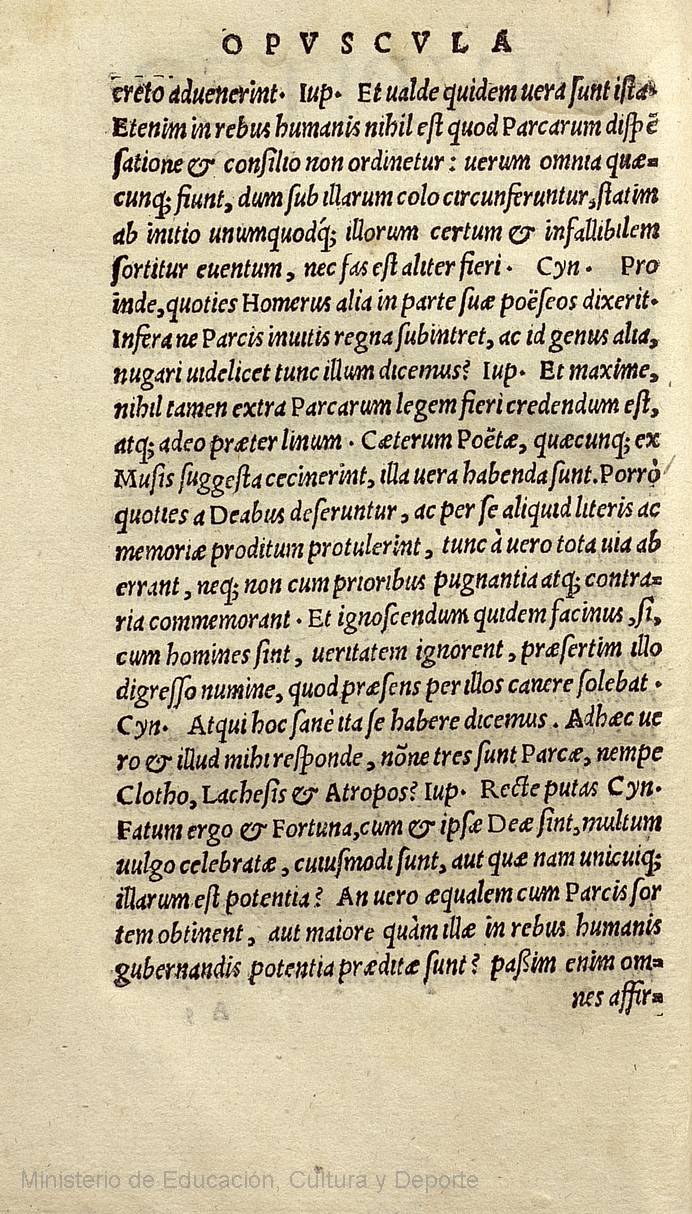 OPVSCVLA
creto aduenerint. Iup. Et ualde quidem uera sunt ista.
Etenim in rebus humanis nihil est quod Parcarum dispē
satione & consilio non ordinetur: uerum omnia quæ=
cunq; fiunt, dum sub illarum colo circunferuntur, statim
ab initio unumquodq́; illorum certum & infallibilem
sortitur euentum, nec fas est aliter fieri. Cyn. Pro
inde, quoties Homerus alia in parte suæ poëseos dixerit.
Infera ne Parcis inuitis regna subintret, ac id genus alia,
nugari uidelicet tunc illum dicemus? Iup. Et maxime,
nihil tamen extra Parcarum legem fieri credendum est,
atq; adeo præter linum. Cæterum Poëtæ, quæcunq; ex
Musis suggesta cecinerint, illa uera habenda sunt. Porrò
quoties a Deabus deseruntur, ac per se aliquid literis ac
memoriæ proditum protulerint, tunc à uero tota uia ab
errant, neq; non cum prioribus pugnantia atq; contra=
ria commemorant. Et ignoscendum quidem facinus, si,
cum homines sint, ueritatem ignorent, præsertim illo
digresso numine, quod præsens per illos canere solebat.
Cyn. Atqui hoc sanè ita se habere dicemus. Adhæc ue
ro & illud mihi responde, nōne tres sunt Parcæ, nempe
Clotho, Lachesis & Atropos? Iup. Recte putas Cyn.
Fatum ergo & Fortuna, cum & ipsæ Deæ sint, multum
uulgo celebratæ, cuiusmodi sunt, aut quæ nam unicuiq;
illarum est potentia? An uero æqualem cum Parcis sor
tem obtinent, aut maiore quàm illæ in rebus humanis
gubernandis potentia præditæ sunt? paßim enim om=
nes affir=
Ministerio de Educación, Cultura y Deporte